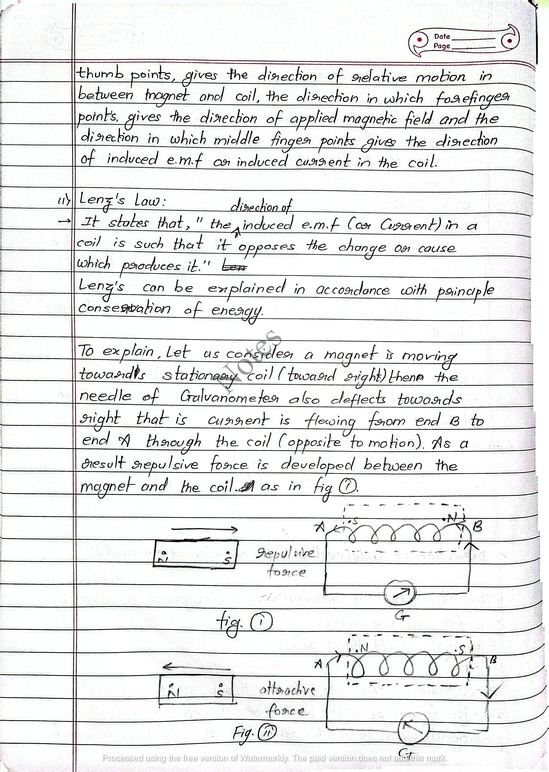 Date
Page
thumb points, gives the direction of relative motion in
between magnet and coil, the direction in which forefinger
points, gives the direction of applied magnetic field and the
direction in which middle finger points gives the direction
of induced e.m.f or induced current in the coil.
ii) Lenz's Law:
direction of
→ It states that, " the ^ induced e.m.f (or Current) in a
coil is such that it opposes the change or cause
which produces it." Len
Lenz's can be explained in accordance with principle
conservation of energy.
Notes
To explain, Let us consider a magnet is moving
towards stationary coil (toward right) then the
needle of Galvanometer also deflects towards
right that is current is flowing from end B to
end A through the coil (opposite to motion). As a
result repulsive force is developed between the
magnet and the coil. as in fig (i).
A S N B
N S repulsive
force
G
fig. (i)
A N S B
N S attractive
force
Fig. (ii)
G
Processed using the free version of Watermarkly. The paid version does not add this mark.